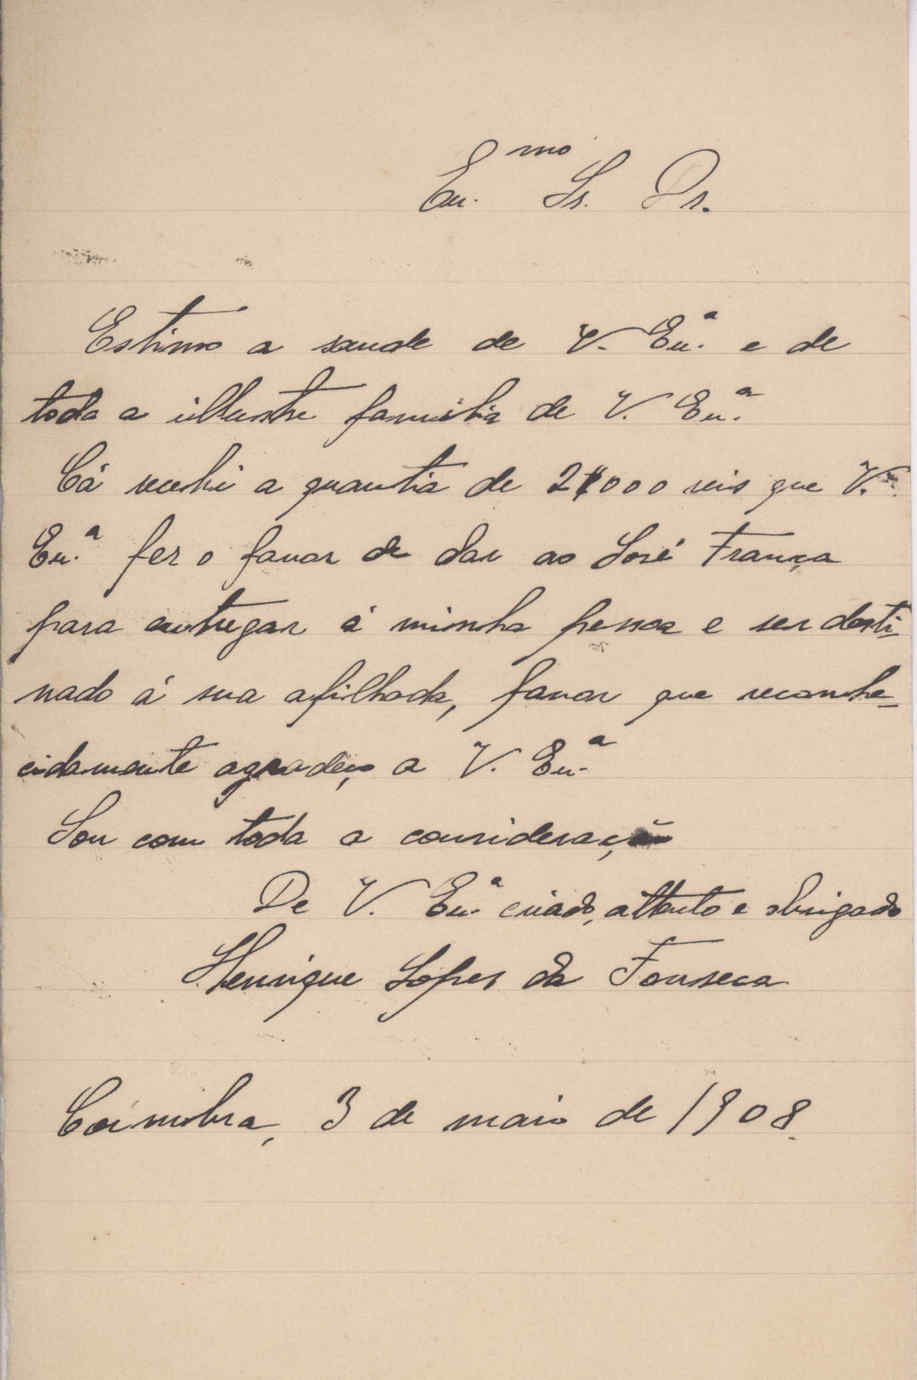 Ex.mo Sr. Dr.
Estimo a saude de V. Ex.a e de
toda a illustre familia de V. Ex.a
Cá recebi a quantia de 2$000 reis que V.
Ex.a fez o favor de dar ao José França
para entregar á minha pessoa e ser desti-
nado á sua afilhada, favor que reconhe-
cidamente agradeço a V. Ex.a
Sou com toda a consideração
De V. Ex.a criado, attento e obrigado
Henrique Lopes da Fonseca
Coimbra, 3 de maio de 1908.